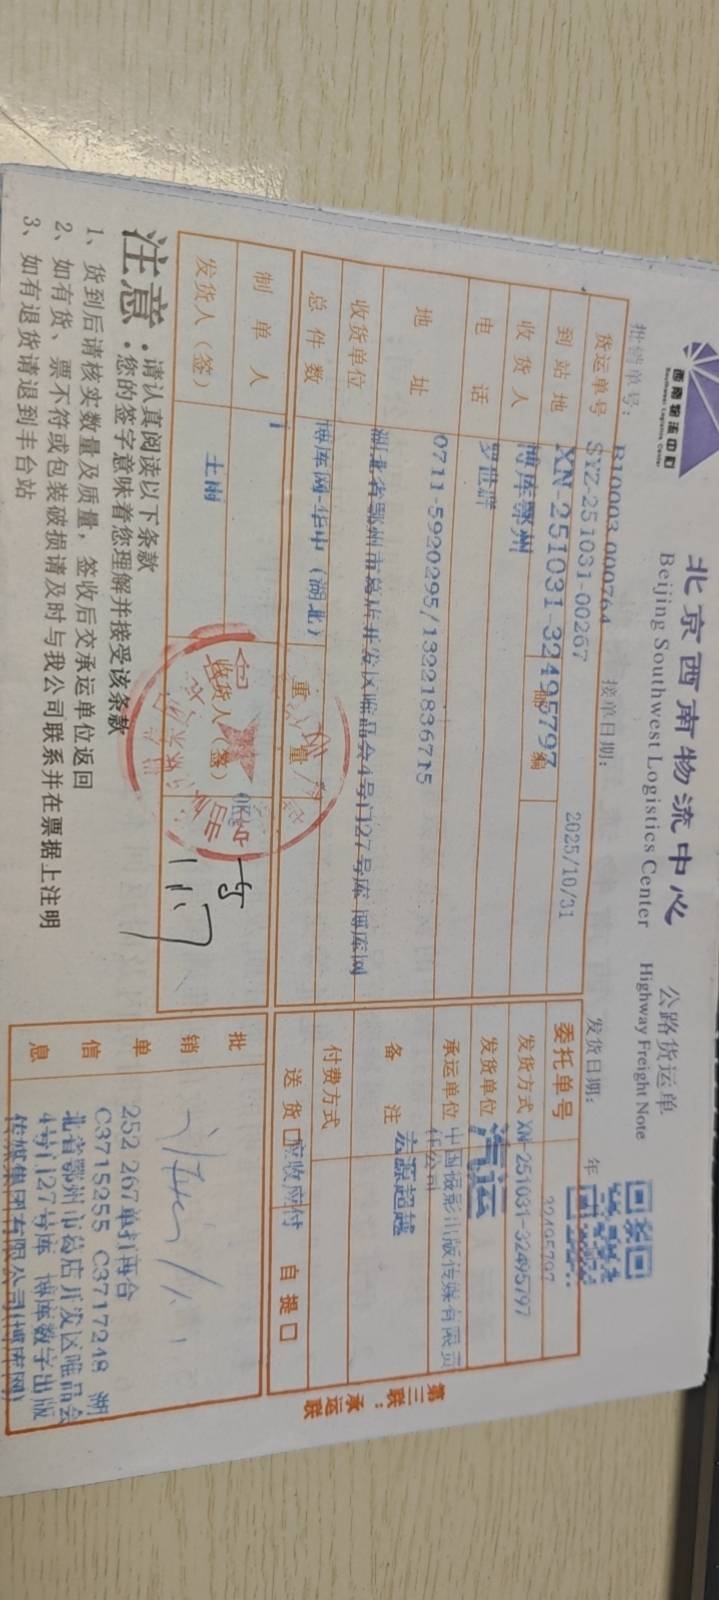 西南物流中心
Southwest Logistics Center
北京西南物流中心
Beijing Southwest Logistics Center
公路货运单
Highway Freight Note
批销单号: B10003 000764
接单日期: 2025/10/31
发货日期: 年
货运单号 SYZ-251031-00267
到站地 XN-251031-32495797
邮编
收货人 博库鄂州
电话 罗世群
地址 0711-5920295/13221836715
收货单位 湖北省鄂州市葛店开发区唯品会4号门27号库 博库网
总件数 博库网-华中(湖北)
重量
委托单号 32495797
发货方式 XN-251031-32495797
发货单位 汽运
承运单位 中国摄影出版传媒有限责任公司
备注 宏源超越
付费方式
送货口 应收应付 自提口
制单人 1
发货人(签) 王雨
收货人(签)
批销单信息
252 267单打再合
C3715255 C3717248 湖
北省鄂州市葛店开发区唯品会
4号门27号库 博库数字出版
传媒集团有限公司(博库网)
第三联:承运联
注意:请认真阅读以下条款
您的签字意味着您理解并接受该条款
1、货到后请核实数量及质量,签收后交承运单位返回
2、如有货、票不符或包装破损请及时与我公司联系并在票据上注明
3、如有退货请退到丰台站